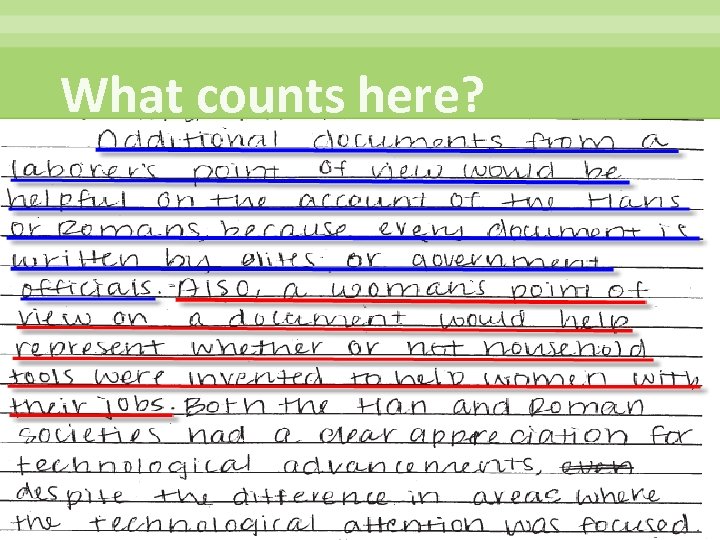 What counts here?
Additional documents from a
laborer's point of view would be
helpful on the account of the Hans
or Romans, because every document is
written by elites or government
officials. Also, a woman's point of
view on a document would help
represent whether or not household
tools were invented to help women with
their jobs. Both the Han and Roman
societies had a clear appreciation for
technological advancements, even
despite the difference in areas where
the technological attention was focused.